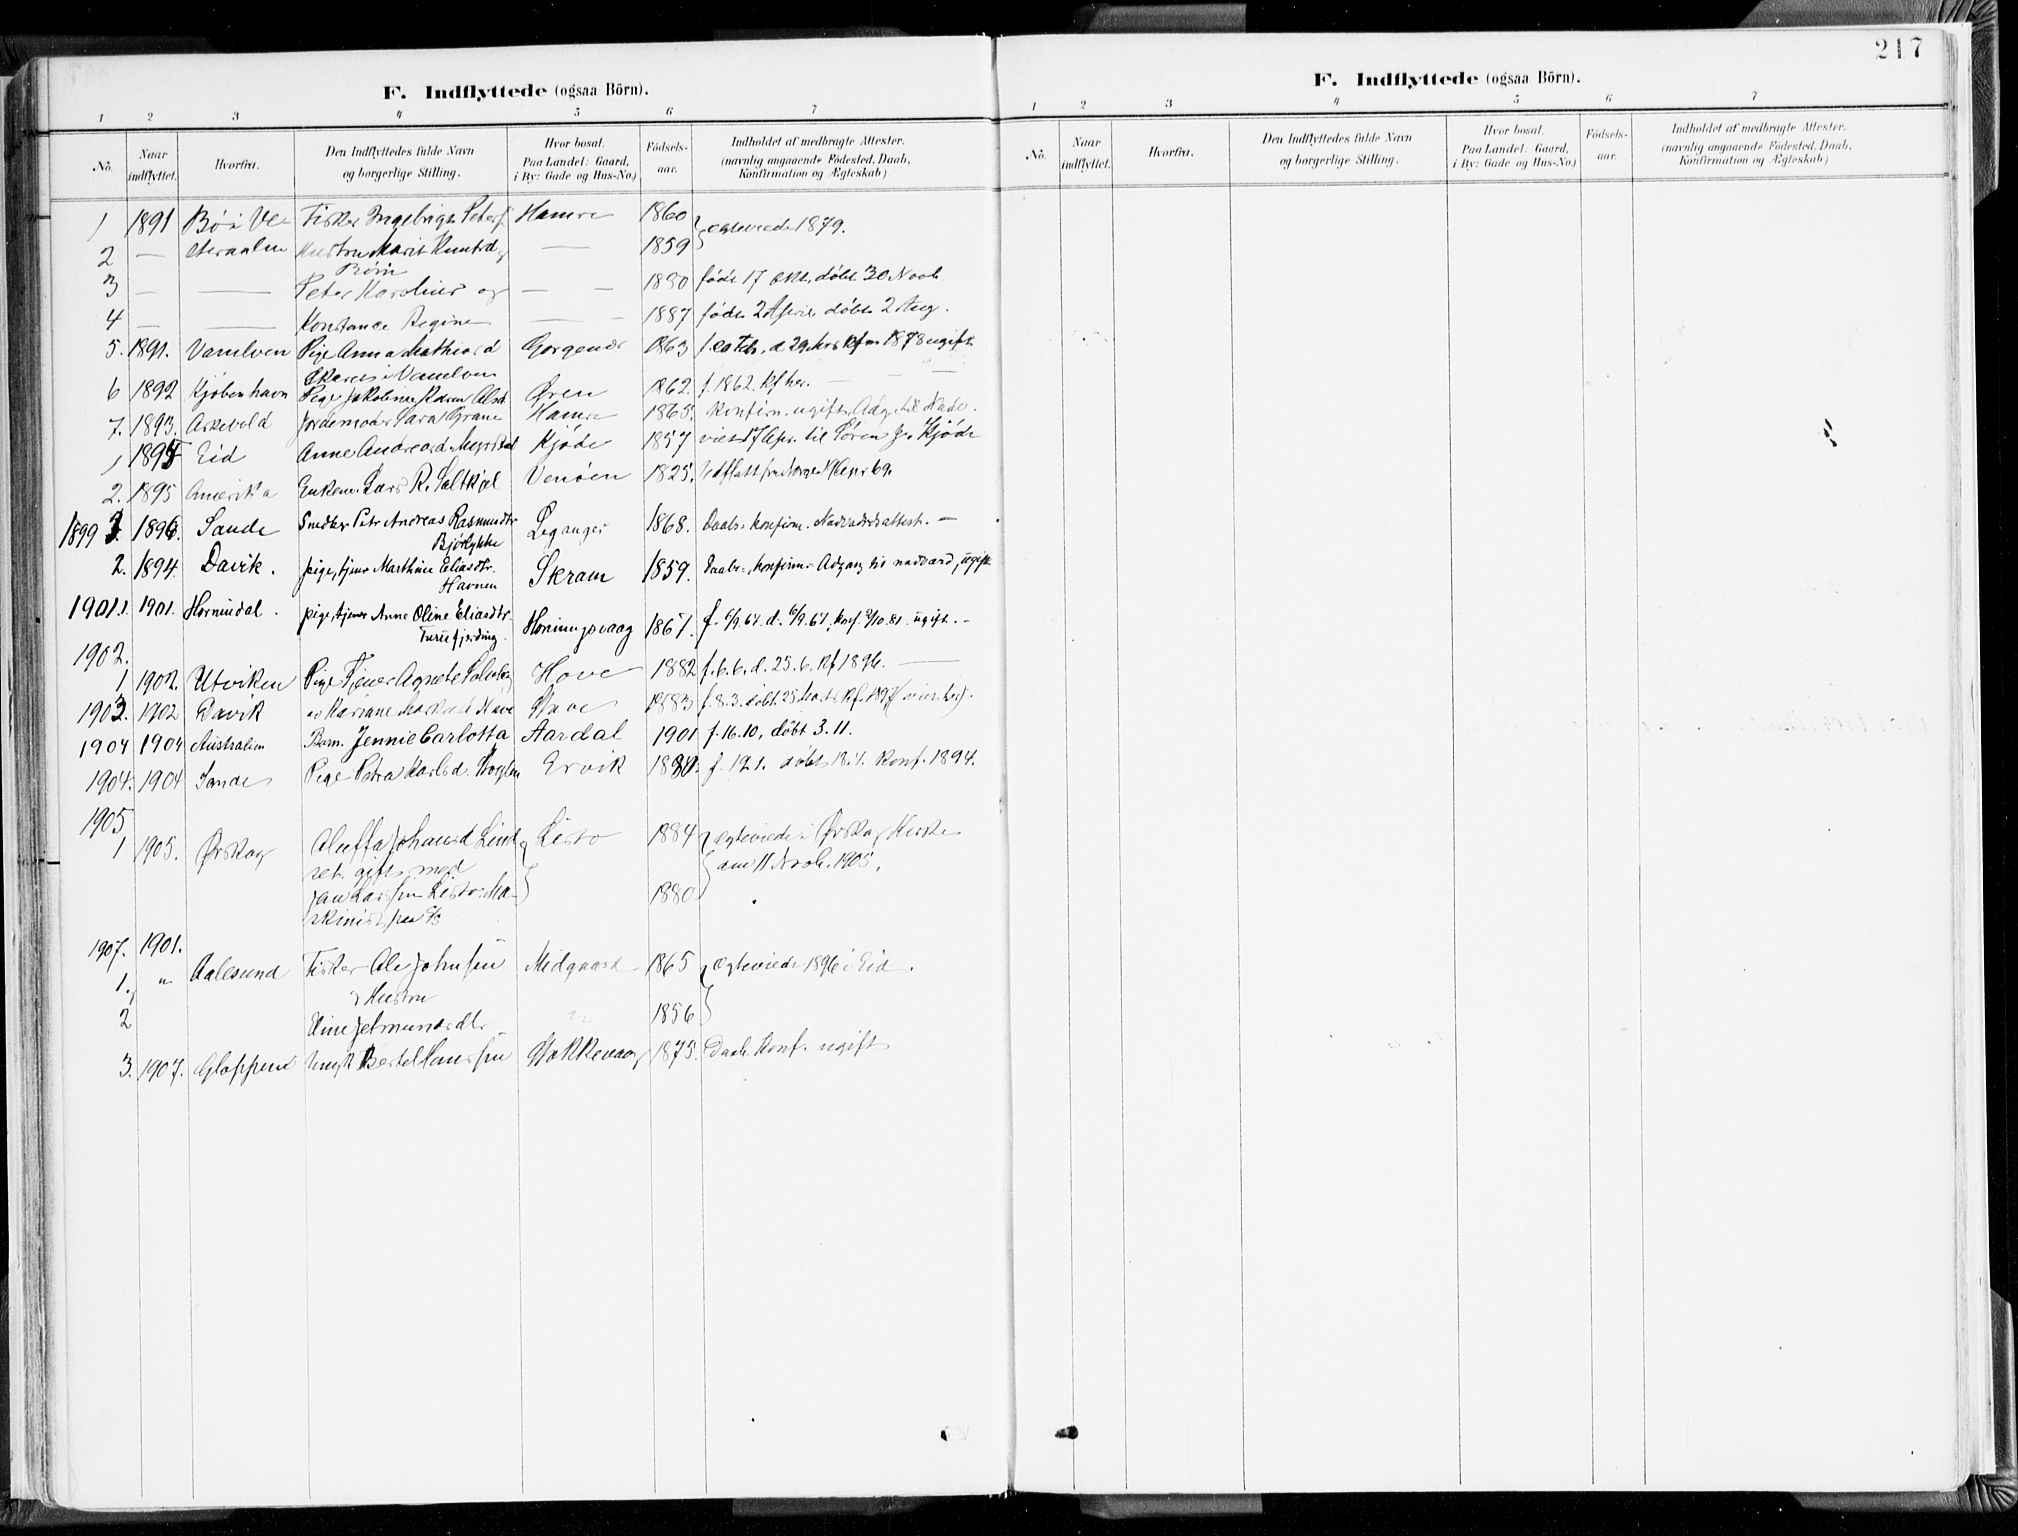 217
F. Indflyttede (ogsaa Börn).
1 2 3 4 5 6 7
No. Naar indflyttet. Hvorfra. Den Indflyttedes fulde Navn og borgerlige Stilling. Hvor bosat. Paa Landet: Gaard, i By: Gade og Hus-No.) Födsels-aar. Indholdet af medbragte Attester. (navnlig angaaende Födested, Daab, Konfirmation og Ægteskab)
1 1891 Bö i Ve- Fisker Ingebrigt Peters Hamre 1860 egteviede 1879.
2 — steraalen Hustru Marit Knutsd — 1859
Börn
3 — — Peter Karolius og — — 1880 födt 17 Okt, döbt 30 Novb.
4 — — Konstance Regine — — 1887 födt 2 April döbt 2 Aug.
5. 1891. Vanelven Pige Anna Mathiasd 1863 1878 ugift
i Vanelven
6 1892 Kjöbenhavn Pige Jakobine Karen Olsd. Øren 1862. f. 1862. Kf her. — — —
7. 1893. Askevold Jordemoder Sara Grane Hamre 1865. Konfirm. ugift, Adg. til Nadv.
1 1895 Eid Anne Andreasd. Kjöde 1857 viet 17 Apr. til Sören Kjöde
2. 1895 Amerika Enkem. Lars R. Saltkjel Venöen 1825. Udflytt fra Norge 69.
1899 1. 1896. Sande Snedker Petr Andreas Rasmusdtr Leganger 1868. Daabs- konfirm. Nadverdsattest. —
Björlykke
2. 1894. Davik. pige, tjener Marthine Eliasdtr. Skram 1859. Daabs-, konfirm.- Adgang til nadverd, ugift
Havnen
1901 1. 1901. Hornindal. pige, tjener Anne Oline Eliasdtr. Honningsvaag 1867. f. 6/9.67. d. 6/9.67, Konf. 2/10.81. ugift. —
1902.
1 1902. Utviken Pige Tjener Agnete Hove 1882 f. 6.6. d. 25.6. Kf 1896. —
1903. 1902 Davik Hove 1883 f. 8.3. döbt 25 Kf. 1897
1904 1904 Australien Barn. Jennie Carlotta Aardal 1901 f. 16.10, döbt 3.11.
1904. 1904 Sande Pige Petra Karlsd. Ervik 1880. f. 12.1. döbt 18.1. Konf. 1894.
1905
1 1905. Ørskog Johansd. Lind- Listo 1884 egteviede i Ørskog Kirke
set. gift med den 11 Novb. 1905.
Listo. Ma- 1880
skinist paa
1907. 1901.
1. " Aalesund Fisker Ole Johnsen Midgaard 1865 Egteviede 1896 i Eid.
og Hustru
2 " 1856
3. 1907. Gloppen Ungk Bertel Hansen Stokkevaag 1875. Daab. Konf. ugift
F. Indflyttede (ogsaa Börn).
1 2 3 4 5 6 7
No. Naar indflyttet. Hvorfra. Den Indflyttedes fulde Navn og borgerlige Stilling. Hvor bosat. Paa Landet: Gaard, i By: Gade og Hus-No.) Födsels-aar. Indholdet af medbragte Attester. (navnlig angaaende Födested, Daab, Konfirmation og Ægteskab)